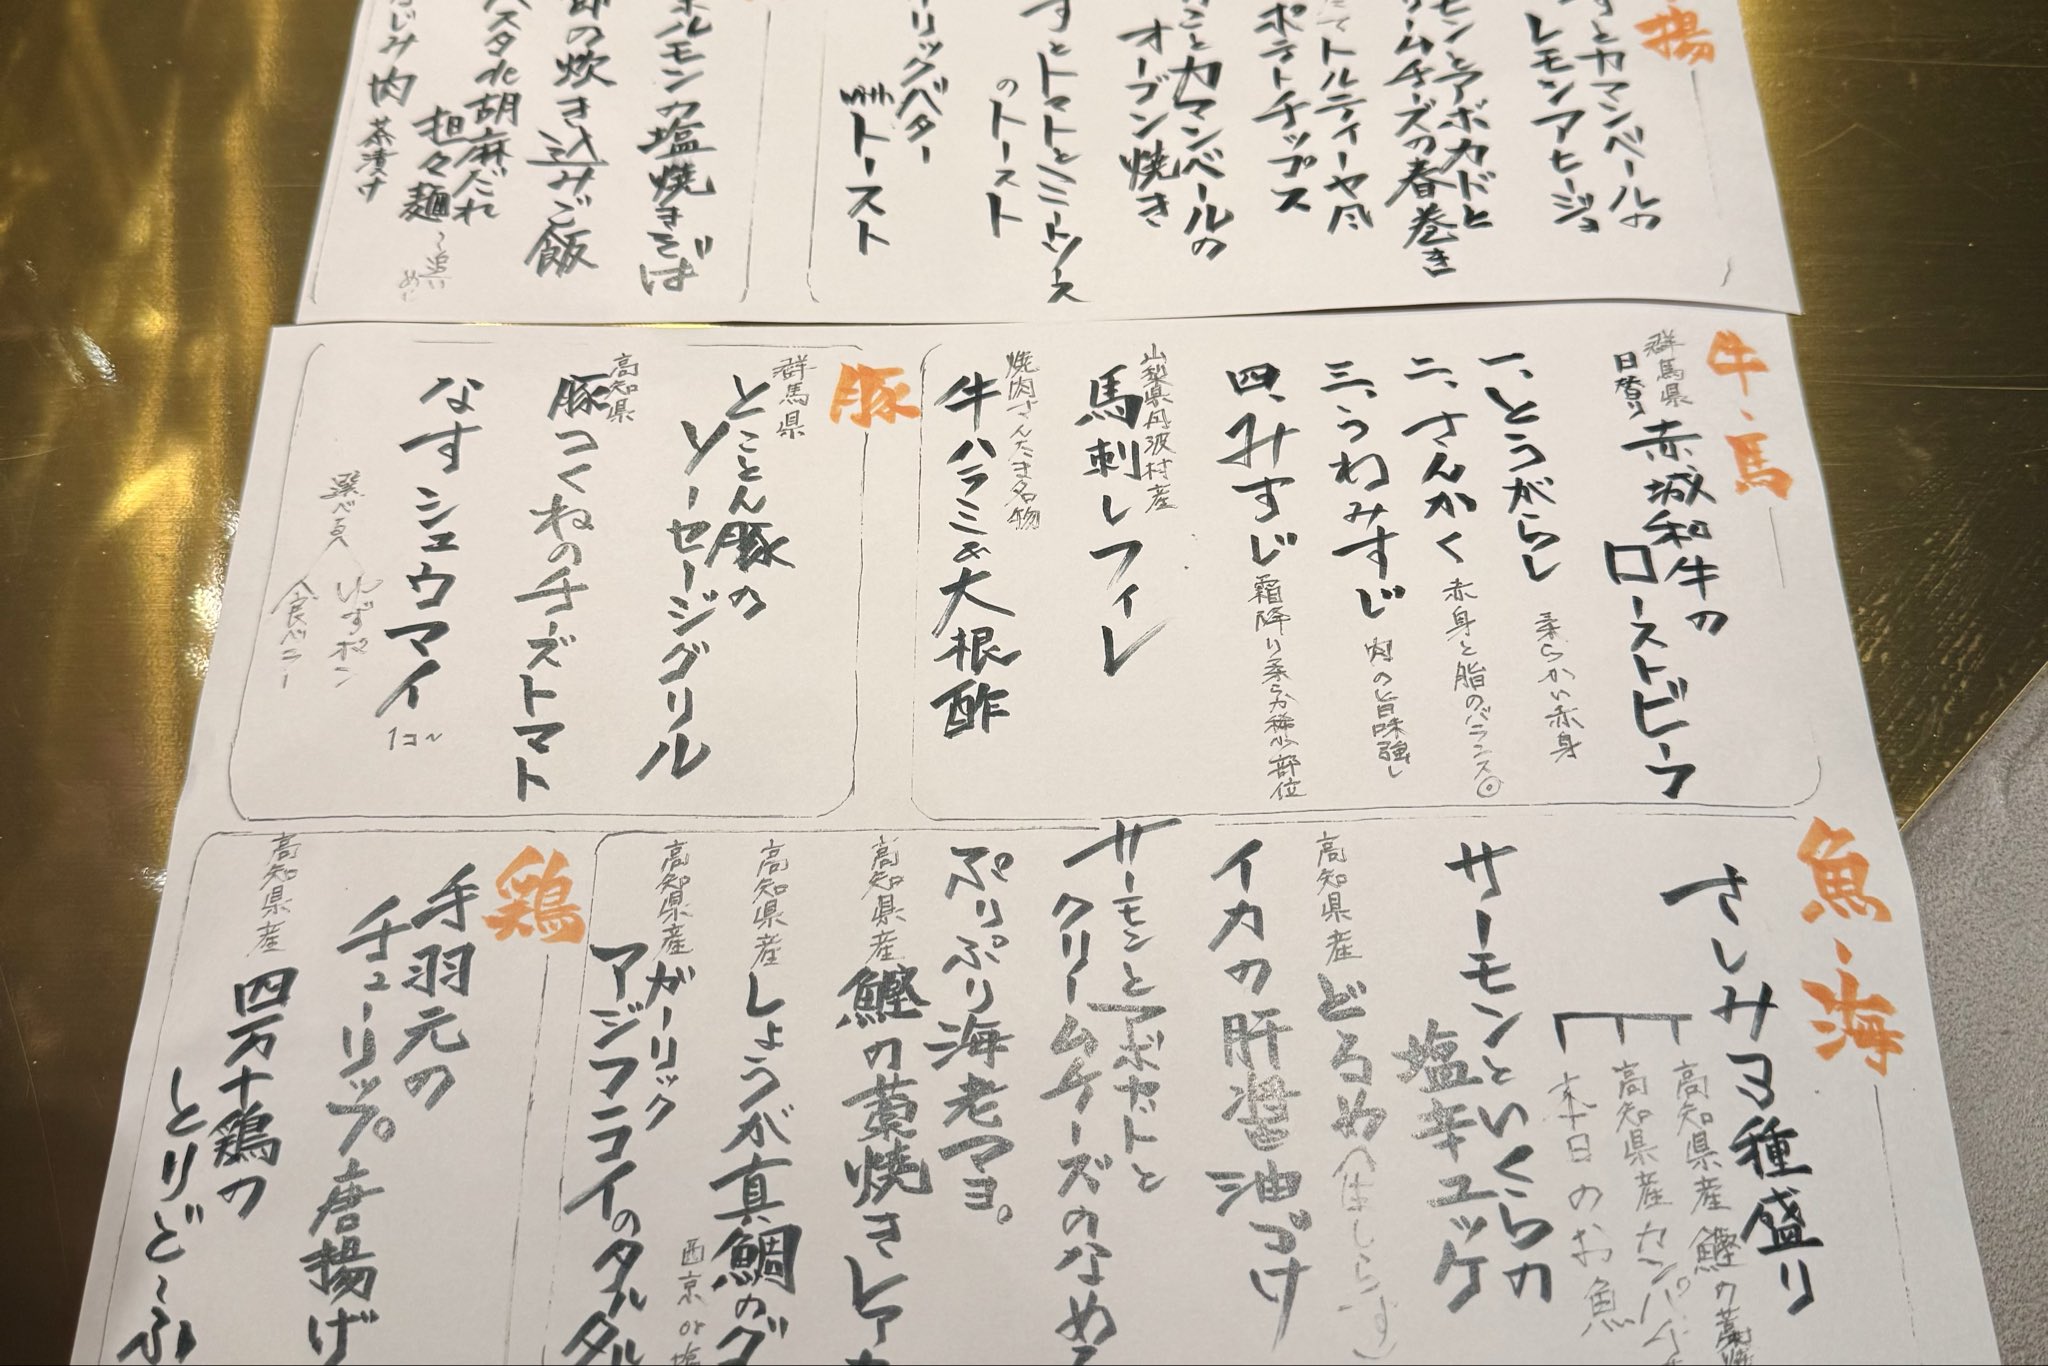 揚
すとカマンベールの
レモンアヒージョ
モンとアボカドと
ームチーズの春巻き
てトルティーヤ風
ポテトチップス
ことカマンベールの
オーブン焼き
すとトマトとミートソース
のトースト
ーリックバター
トースト
ホルモンカ塩焼きそば
の炊き込みご飯
北胡麻だれ
担々麺
〜追い
めし
じみ肉茶漬け
牛・馬
群馬県
日替り
赤城和牛の
ローストビーフ
一、とうがらし 柔らかい赤身
二、さんかく 赤身と脂のバランス◎
三、うわみすじ 肉の旨味強し
四、みすじ 霜降り柔らか稀少部位
山梨県丹波村産
馬刺しフィレ
焼肉さんたま名物
牛ハラミ&大根酢
豚
群馬県
とことん豚の
ソーセージグリル
高知県
豚コくねのチーズトマト
なすシュウマイ 1コ〜
選べる
ゆずポン
食べラー
魚・海
さしみ3種盛り
高知県産 鰹の藁焼
高知県産カンパチ
本日のお魚
サーモンといくらの
塩辛ユッケ
高知県産どろめ(生しらす)
イカの肝醤油づけ
サーモンとアボカドと
クリームチーズのなめ
ぷりぷり海老マヨ。
高知県産
鰹の藁焼きレア
高知県産
しょうが真鯛の
西京or塩
高知県産
ガーリック
アジフライのタルタル
鶏
手羽元の
チューリップ。唐揚げ
高知県産
四万十鶏の
しとりど〜ふ